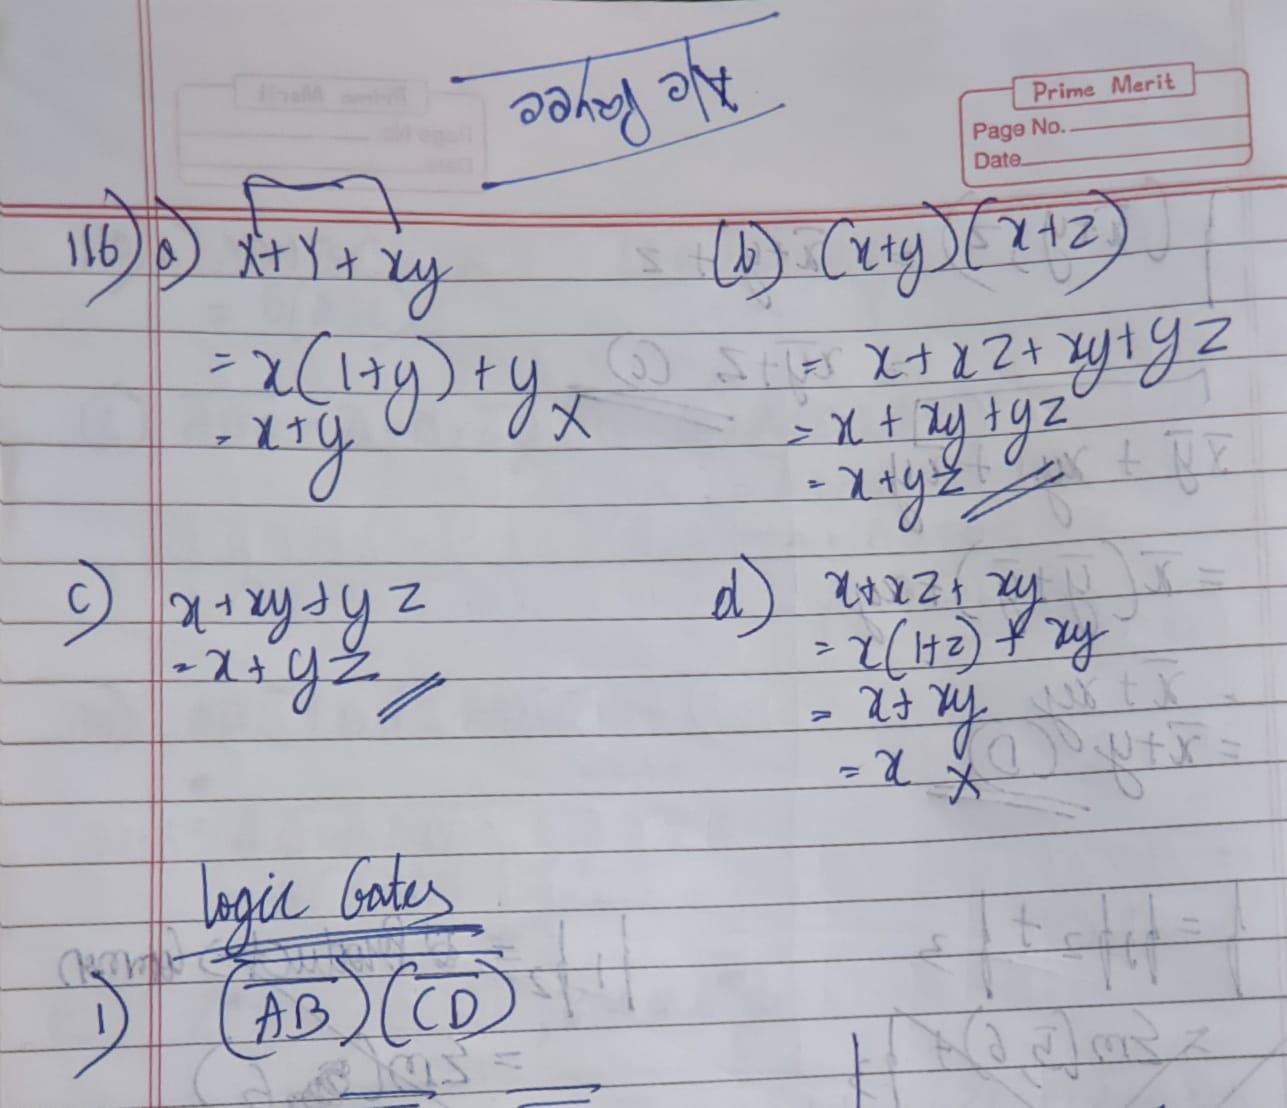 A/C Payee
Prime Merit
Page No.
Date
116) a) x+y+xy
= x(1+y)+y
= x+y x
(b) (x+y)(x+z)
= x+xz+xy+yz
= x+xy+yz
= x+yz
c) x+xy+yz
= x+yz
d) x+xz+xy
= x(1+z)+xy
= x+xy
= x x
Logic Gates
1) (\overline{AB})(\overline{CD})